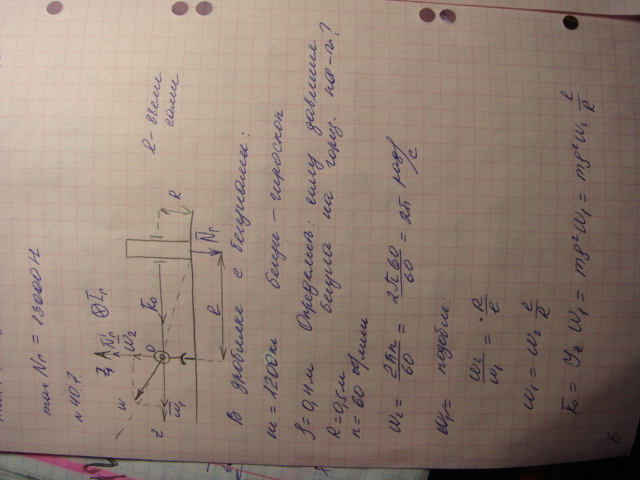 max Nr = 13000 Н
№ 407
R - ввели сами
z
ω
ω₂
ω₁
K₀
O
R
ℓ
В дробилке с бегунками:
m = 1200 кг бегун - гироскоп
ρ = 0,4 м Определить: силу давления
R = 0,5 м бегуна на гориз. пов-ть?
n = 60 об/мин
ω₂ = 2πn/60 = 2π60/60 = 2π рад/с
ω₁ = подобие:
ω₂/ω₁ = R/ℓ
ω₁ = ω₂ ℓ/R
K₀ = Jz ω₁ = mρ²ω₁ = mρ²ω₂ ℓ/R
6